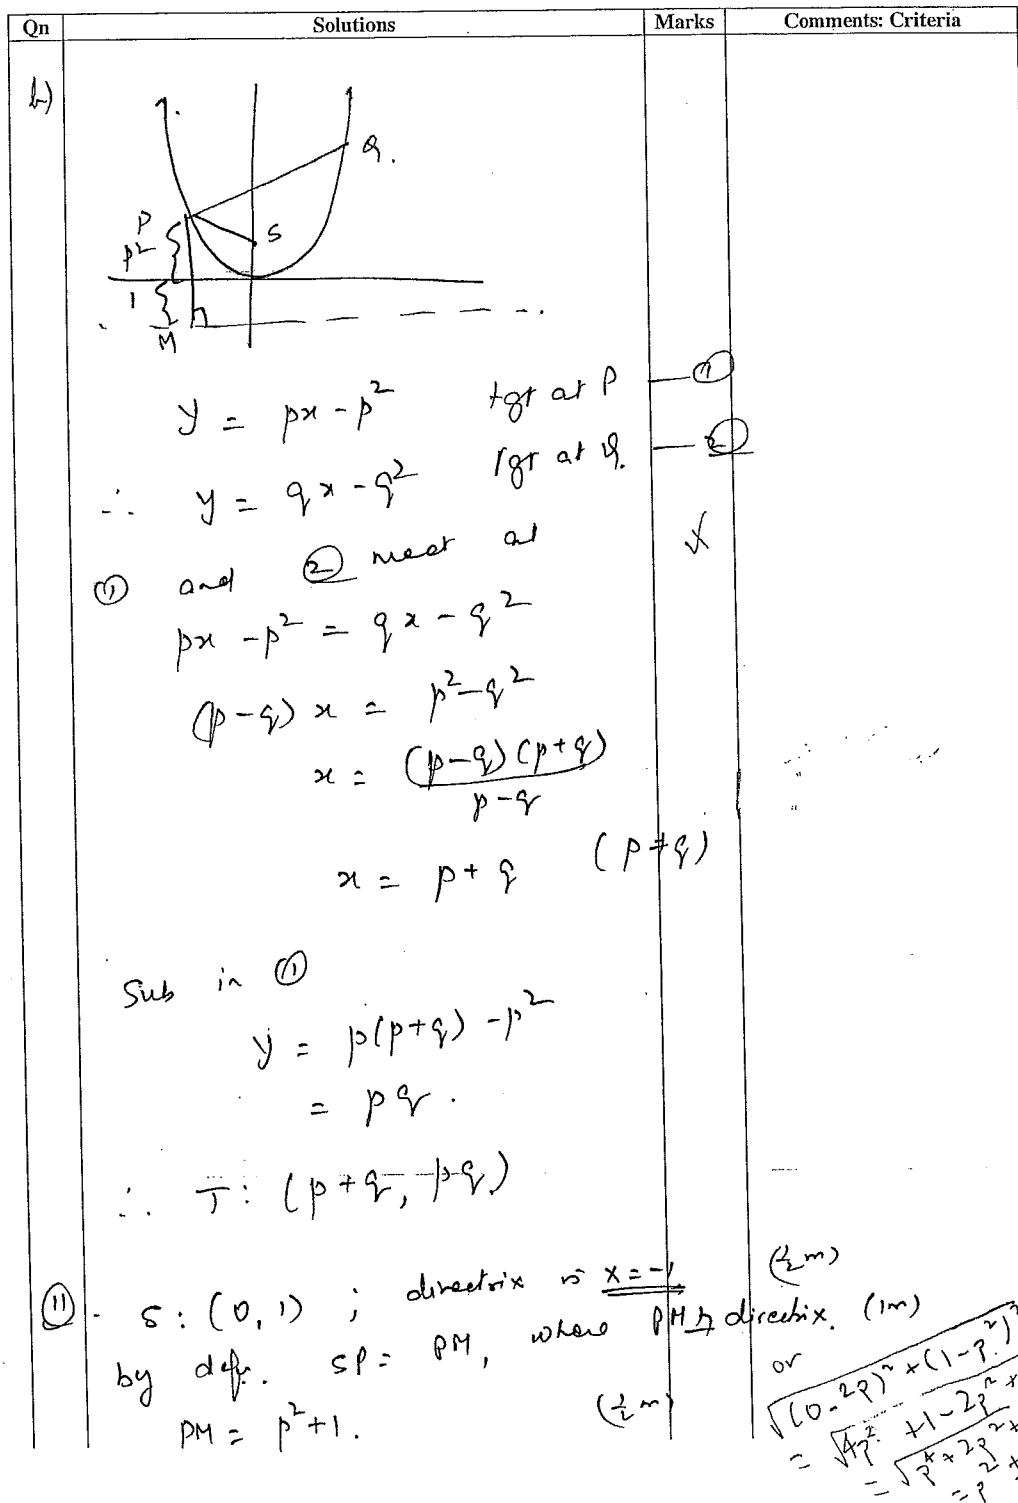 Qn Solutions Marks Comments: Criteria
b)
Q.
P
S
p²
1
M
y = px - p² tgt at P — ①
∴ y = qx - q² tgt at Q. — ②
① and ② meet at
px - p² = qx - q²
(p-q) x = p² - q²
x = (p-q)(p+q)
p-q
x = p + q (p ≠ q)
Sub in ①
y = p(p+q) - p²
= pq.
∴ T: (p+q, pq)
(½m)
(11) S: (0, 1) ; directrix is x = -1
by def. SP = PM, where PM ⊥ directrix. (1m)
PM = p² + 1. (½m)
or
√(0-2p)² + (1-p²)²
= √4p² + 1 - 2p² +
= √p⁴ + 2p² +
= p² +